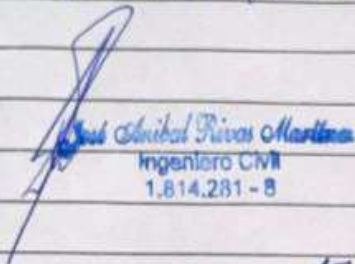 José Anibal Rivas Martinez
Ingeniero Civil
1.814.281 - 8